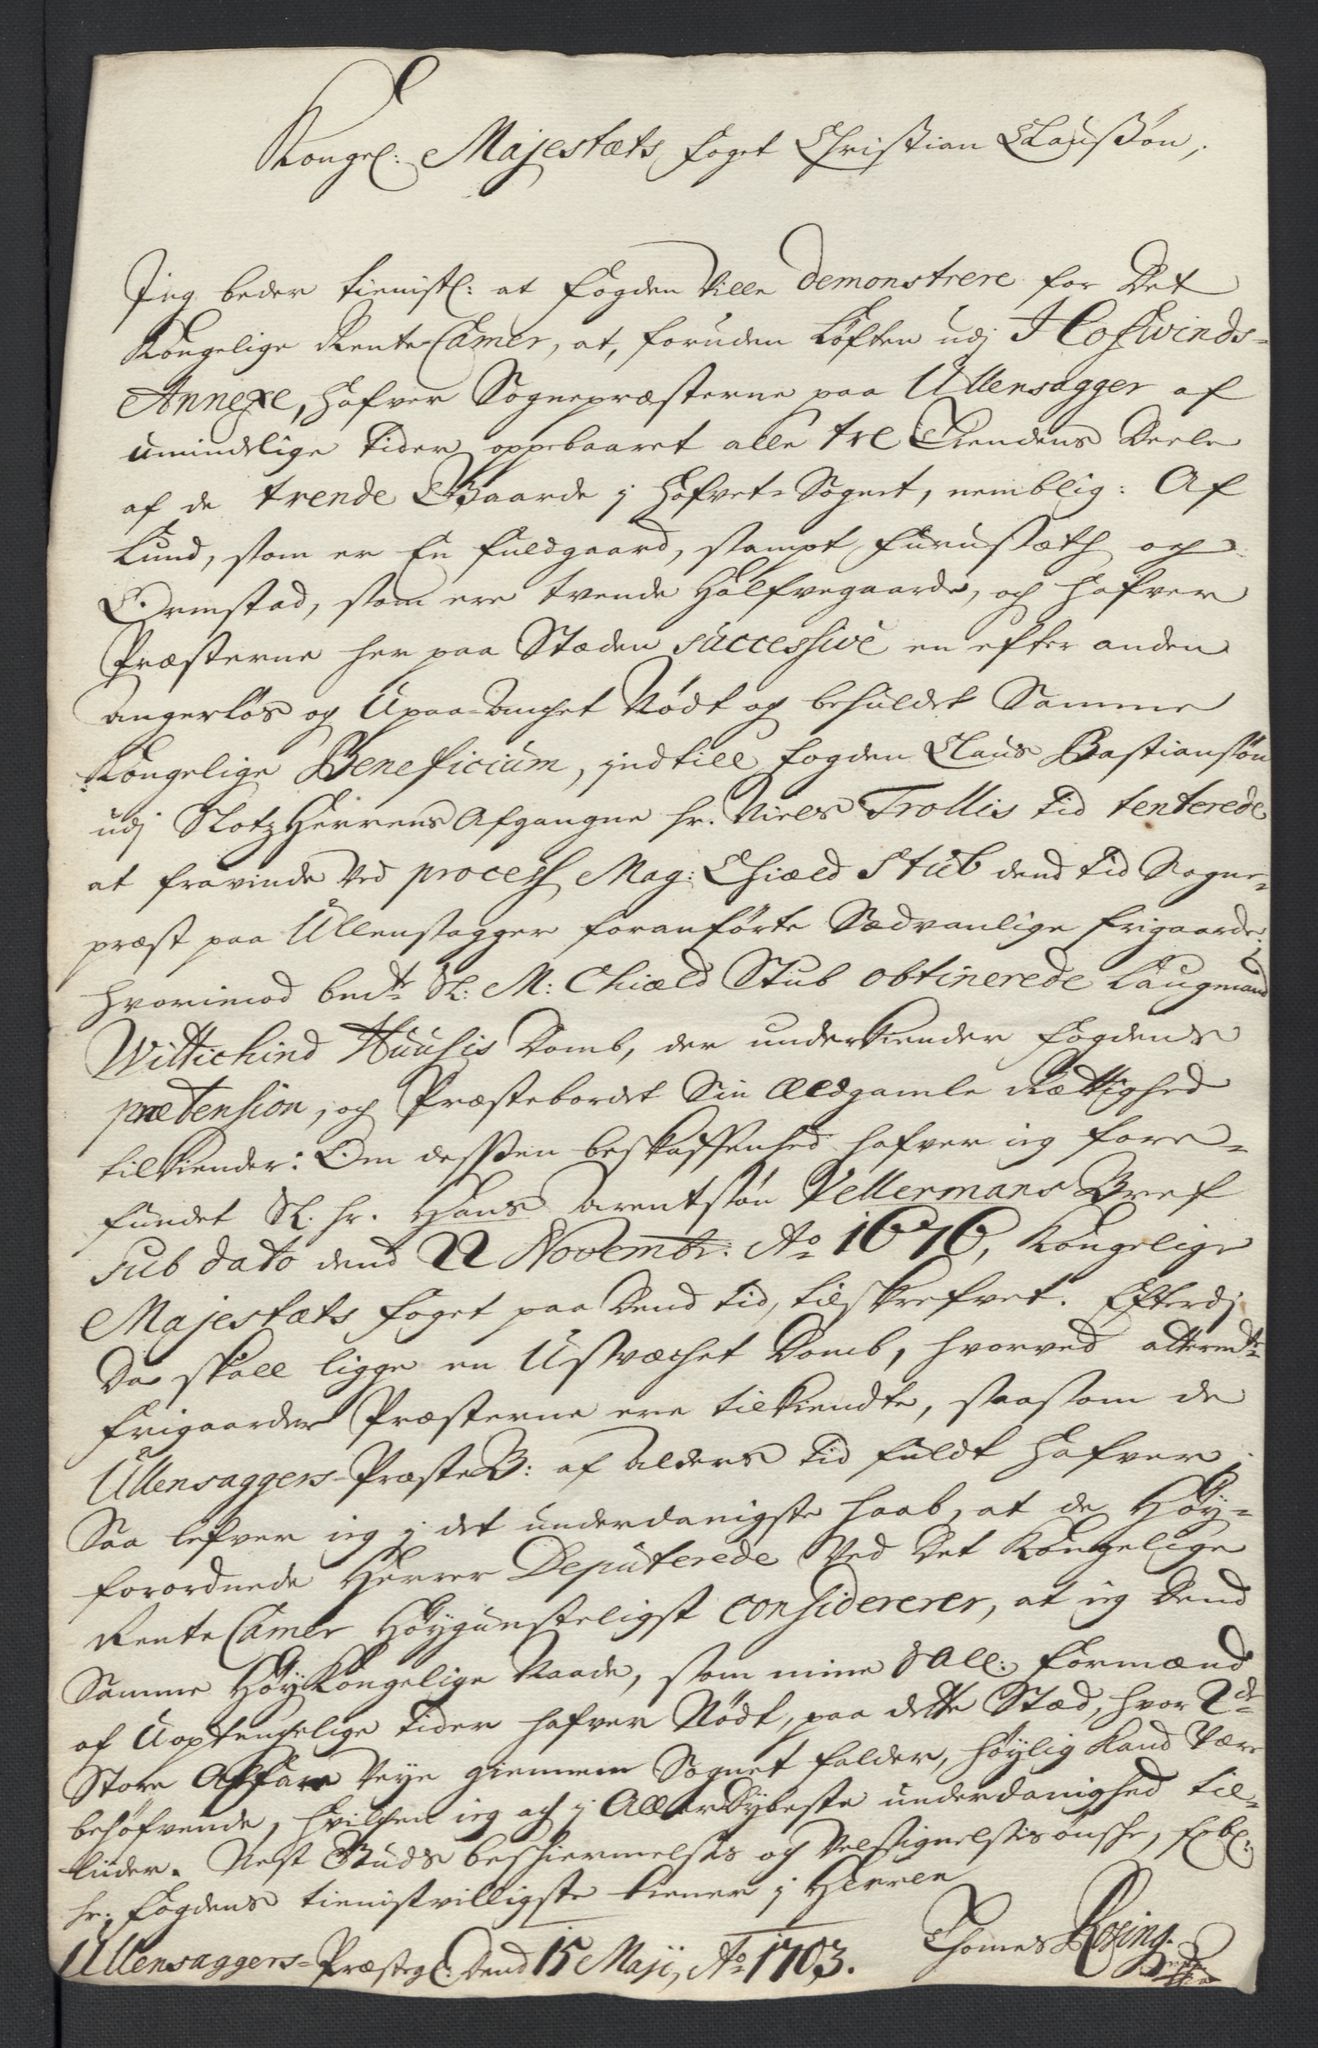 Kongel: Majestæts foget Christian Claussøn,
Jeg beder tienistl: at fogden ville demonstrere for det
Kongelige Rente Camer, at, foruden Løften udj Hofwinds-
Annexe, hafver Sognepræsterne paa Ullensagger af
umindelige tider oppebaaret alle tre Tiendens Deele
af de trende Gaarde j Hofvet-Sognet, nemblig: Af
Lund, som er En fuldgaard, sampt furusæth og
Ormstad, som ere tvende Halfvegaarde, og hafver
Præsterne her paa Stæden successive en efter anden
angerløs og Upaa-anchet Nødt og beholdet Samme
Kongelige Beneficium, indtill fogden Claus Bastiansøn
udj SlotzHerrens Afgangne hr. Niels Trollis tid tenterede
at fravinde ved process Mag: Chiæld Stub dend tid Sogne-
præst paa Ullensagger foranførte Sædvanlige frigaarde:
hvorimod bemte Sl: M: Chiæld Stub obtinerede Laugmand
Wittichind Huusis Domb, der underkiender fogdens
prætension, og Præstebordet Sin Ældgamle Rættighed
tilkiender: Om dessen beskaffenhed hafver ieg fore-
fundet Sl. hr. Hans Arentsøn Vellermans Bref
sub dato dend 22 Novembr: Ao 1676, Kongelige
Majestæts foget paa dend tid, tilskrefvet. Efterdj
Da skall ligge en Usvæchet Domb, hvorved
frigaarder Præsterne ere tilkiendte, saasom de
Ullensaggers-PræsteB: af alders tid fuldt hafver,
Saa lefver ieg j det underdanigste haab, at de Høy-
forordnede Herrer Deputerede ved det Kongelige
Rente Camer Høygunsteligst considererer, at ieg dend
Samme HøyKongelige Naade, som mine Sall: formænd
af Uoptenchelige tider hafver Nødt, paa dette Stæd, hvor 2de
Store Alfare Veye giennem Sognet falder, høylig kand være
behøfvende, hvilchen ieg och j Aller dybeste underdanighed til-
liider. Nest Guds beskiermelsis og velsignelsis ønsche, forbl:
hr. fogdens tienistvilligste tiener j Herren
Thomes Rosing.
Ullensaggers-Præsteg: dend 15 Maji, Ao 1703.